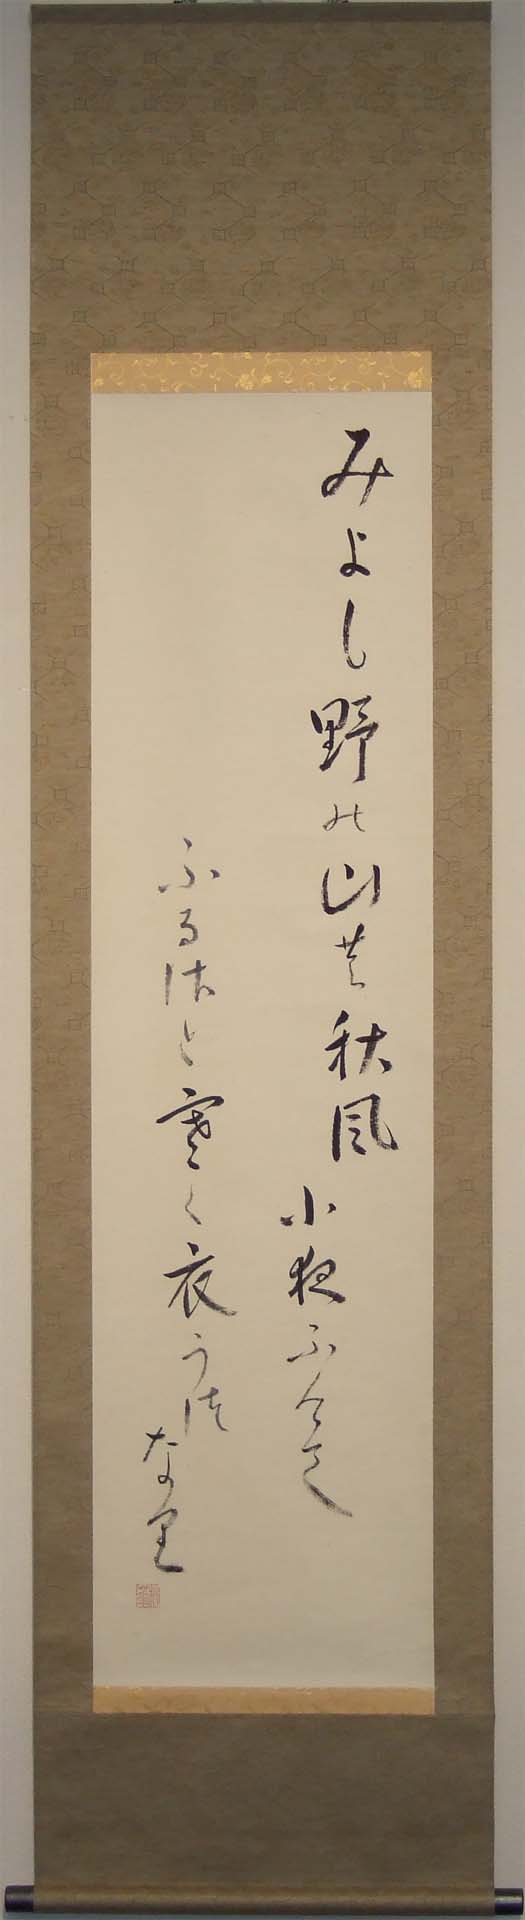 みよし野の山の秋風
小夜ふけて
ふるさと寒く衣うつ
なり